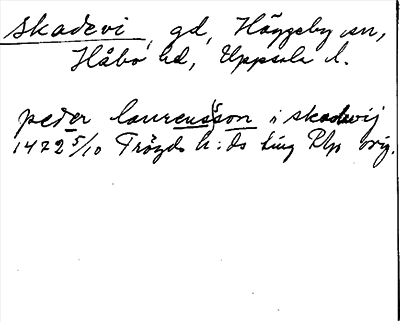 Skadevi, gd, Häggeby sn,
Håbo hd, Uppsala l.
peder laurensson i skadewij
1472 5/10 Trögds h:ds ting Rhp orig.